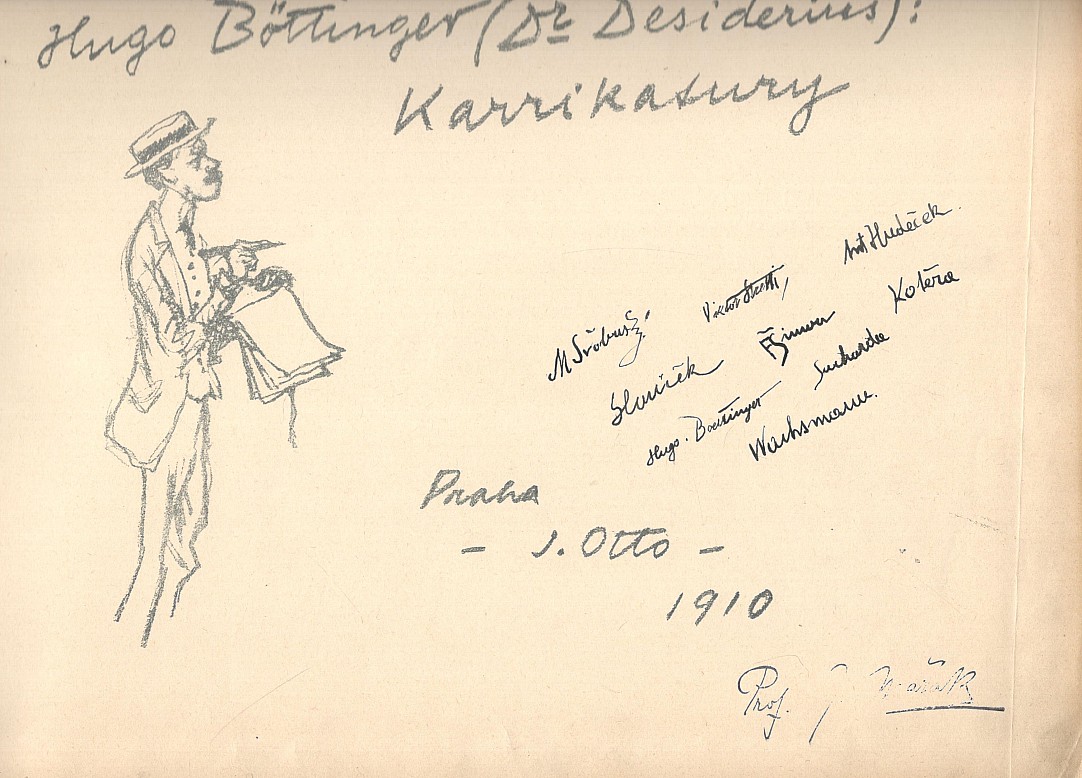 Hugo Böttinger (Dr Desiderius):
Karrikatury
Viktor Stretti, Ant Hudeček.
Slavíček Šimon Kotěra
Hugo. Boettinger Sucharda
Wachsmann.
Praha
– J. Otto –
1910
Prof. J. Mařák